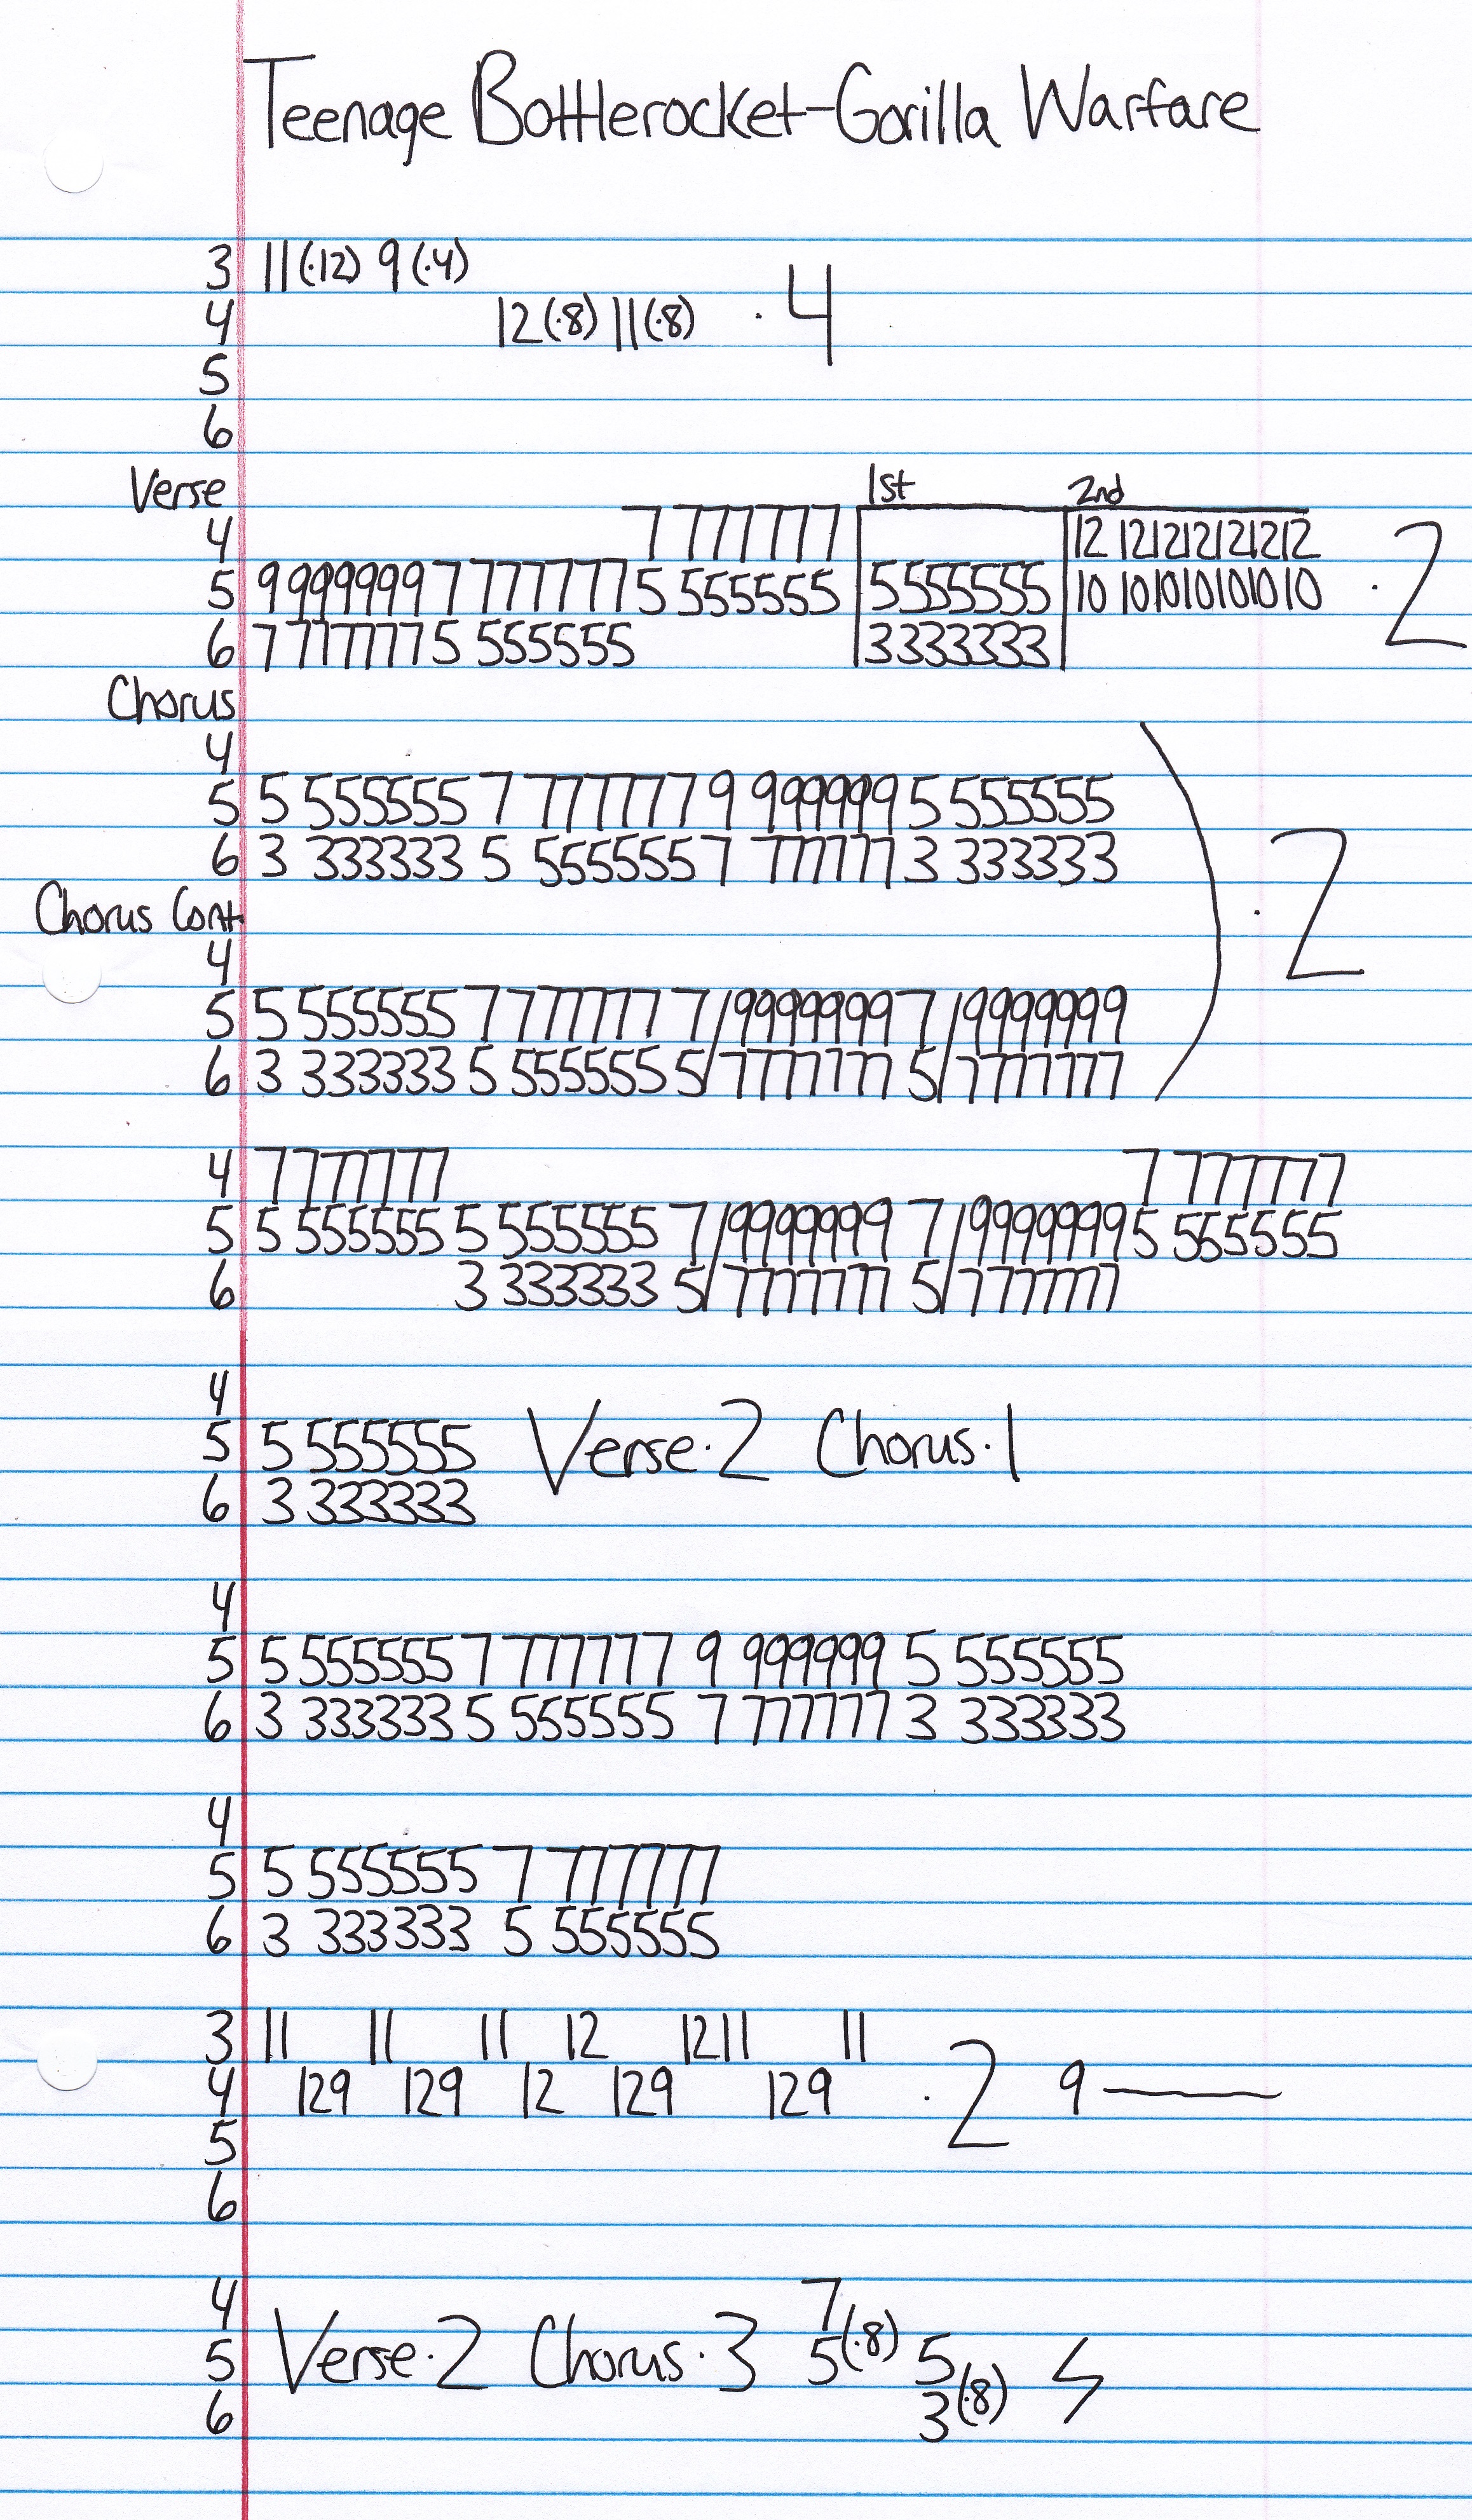 Teenage Bottlerocket-Gorilla Warfare
3 11(·12) 9(·4)
4 12(·8) 11(·8) ·4
5
6
Verse 1st 2nd
4 7 777777 12 121212121212
5 9 999999 7 777777 5 555555 5555555 10 101010101010 ·2
6 7 777777 5 555555 3333333
Chorus
4
5 5 555555 7 777777 9 999999 5 555555
6 3 333333 5 555555 7 777777 3 333333 ·2
Chorus Cont.
4
5 5 555555 7 777777 7/9999999 7/9999999
6 3 333333 5 555555 5/7777777 5/7777777
4 7 777777 7 777777
5 5 555555 5 555555 7/9999999 7/9999999 5 555555
6 3 333333 5/7777777 5/7777777
4
5 5 555555 Verse·2 Chorus·1
6 3 333333
4
5 5 555555 7 777777 9 999999 5 555555
6 3 333333 5 555555 7 777777 3 333333
4
5 5 555555 7 777777
6 3 333333 5 555555
3 11 11 11 12 12 11 11
4 129 129 12 129 129 ·2 9
5
6
4 7
5 Verse·2 Chorus·3 5(·8) 5
6 3(·8)